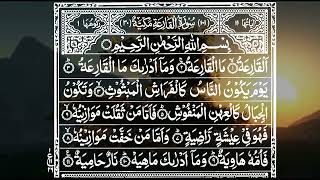 سُوْرَةُ الْقَارِعَةِ مَكِّيَّةٌ
بِسْمِ اللّٰهِ الرَّحْمٰنِ الرَّحِيْمِ
اَلْقَارِعَةُ مَا الْقَارِعَةُ وَمَاۤ اَدْرٰىكَ مَا الْقَارِعَةُ
يَوْمَ يَكُوْنُ النَّاسُ كَالْفَرَاشِ الْمَبْثُوْثِ وَتَكُوْنُ
الْجِبَالُ كَالْعِهْنِ الْمَنْفُوْشِ فَاَمَّا مَنْ ثَقُلَتْ مَوَازِيْنُهٗ
فَهُوَ فِيْ عِيْشَةٍ رَّاضِيَةٍ وَاَمَّا مَنْ خَفَّتْ مَوَازِيْنُهٗ
فَاُمُّهٗ هَاوِيَةٌ وَمَاۤ اَدْرٰىكَ مَاهِيَهْ نَارٌ حَامِيَةٌ